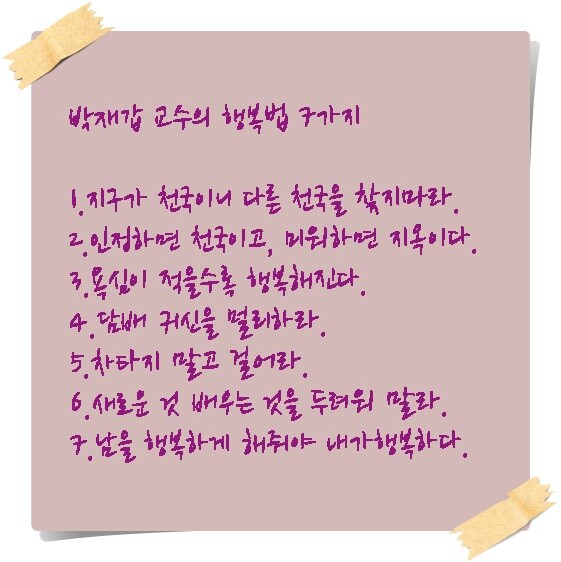 박재갑 교수의 행복법 7가지
1.지구가 천국이니 다른 천국을 찾지마라.
2.인정하면 천국이고, 미워하면 지옥이다.
3.욕심이 적을수록 행복해진다.
4.담배 귀신을 멀리하라.
5.차타지 말고 걸어라.
6.새로운 것 배우는 것을 두려워 말라.
7.남을 행복하게 해줘야 내가행복하다.